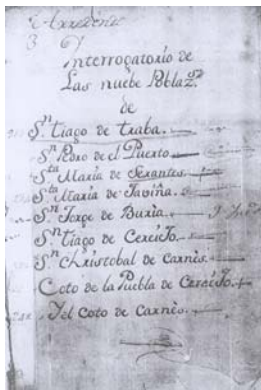 Ynterrogatorio de
Las nuebe Poblaz.s
de
S.n Tiago de traba.
S.n Pedro de el Puerto
S.ta Maria de Serantes
S.ta Maria de Javiña.
S.n Jorge de Buria.
S.n Tiago de Cereijo.
S.n Christobal de Carnés.
Coto de la Puebla de Cereijo.
Y el Coto de Carnés.